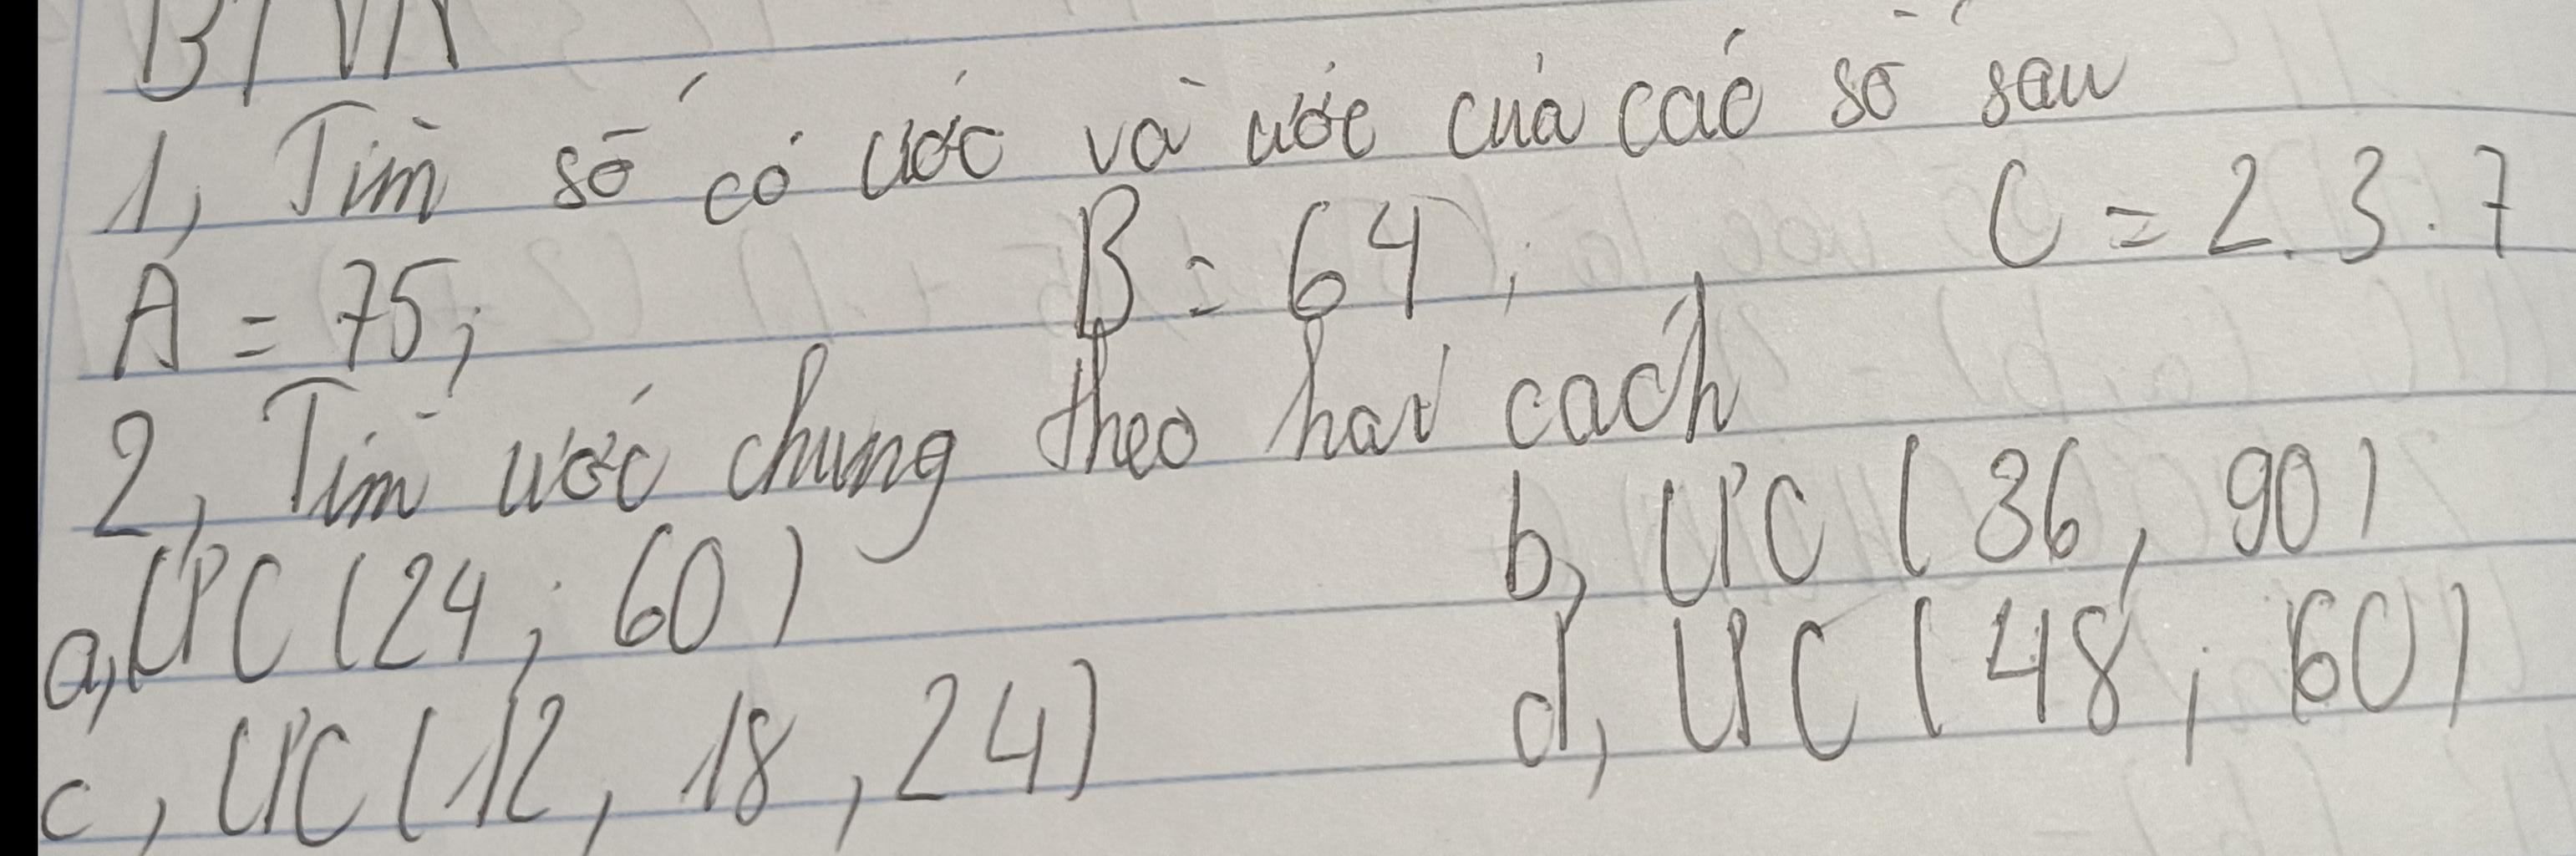 BTVN
1, Tìm số có ước và ước của các số sau
A = 75; B = 64; C = 2.3.7
2, Tìm ước chung theo hai cách
a, ƯC (24; 60) b, ƯC (36, 90)
c, ƯC (12, 18, 24) d, ƯC (48; 60)